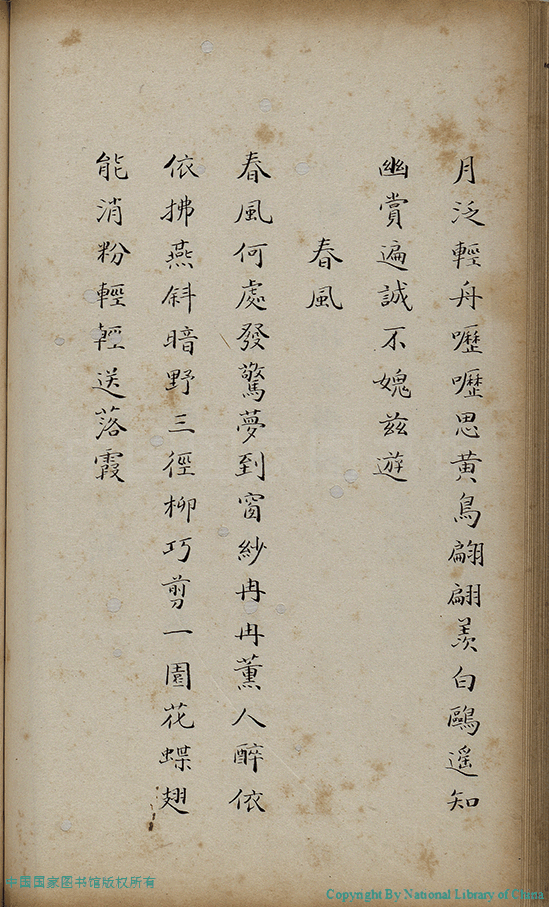 月泛輕舟嚦嚦思黃鳥翩翩羨白鷗遥知
幽賞遍誠不媿茲遊
春風
春風何處發驚夢到窗紗冉冉薰人醉依
依拂燕斜暗野三徑柳巧剪一園花蝶翅
能消粉輕輕送落霞
中国国家图书馆版权所有
Copyright By National Library of China